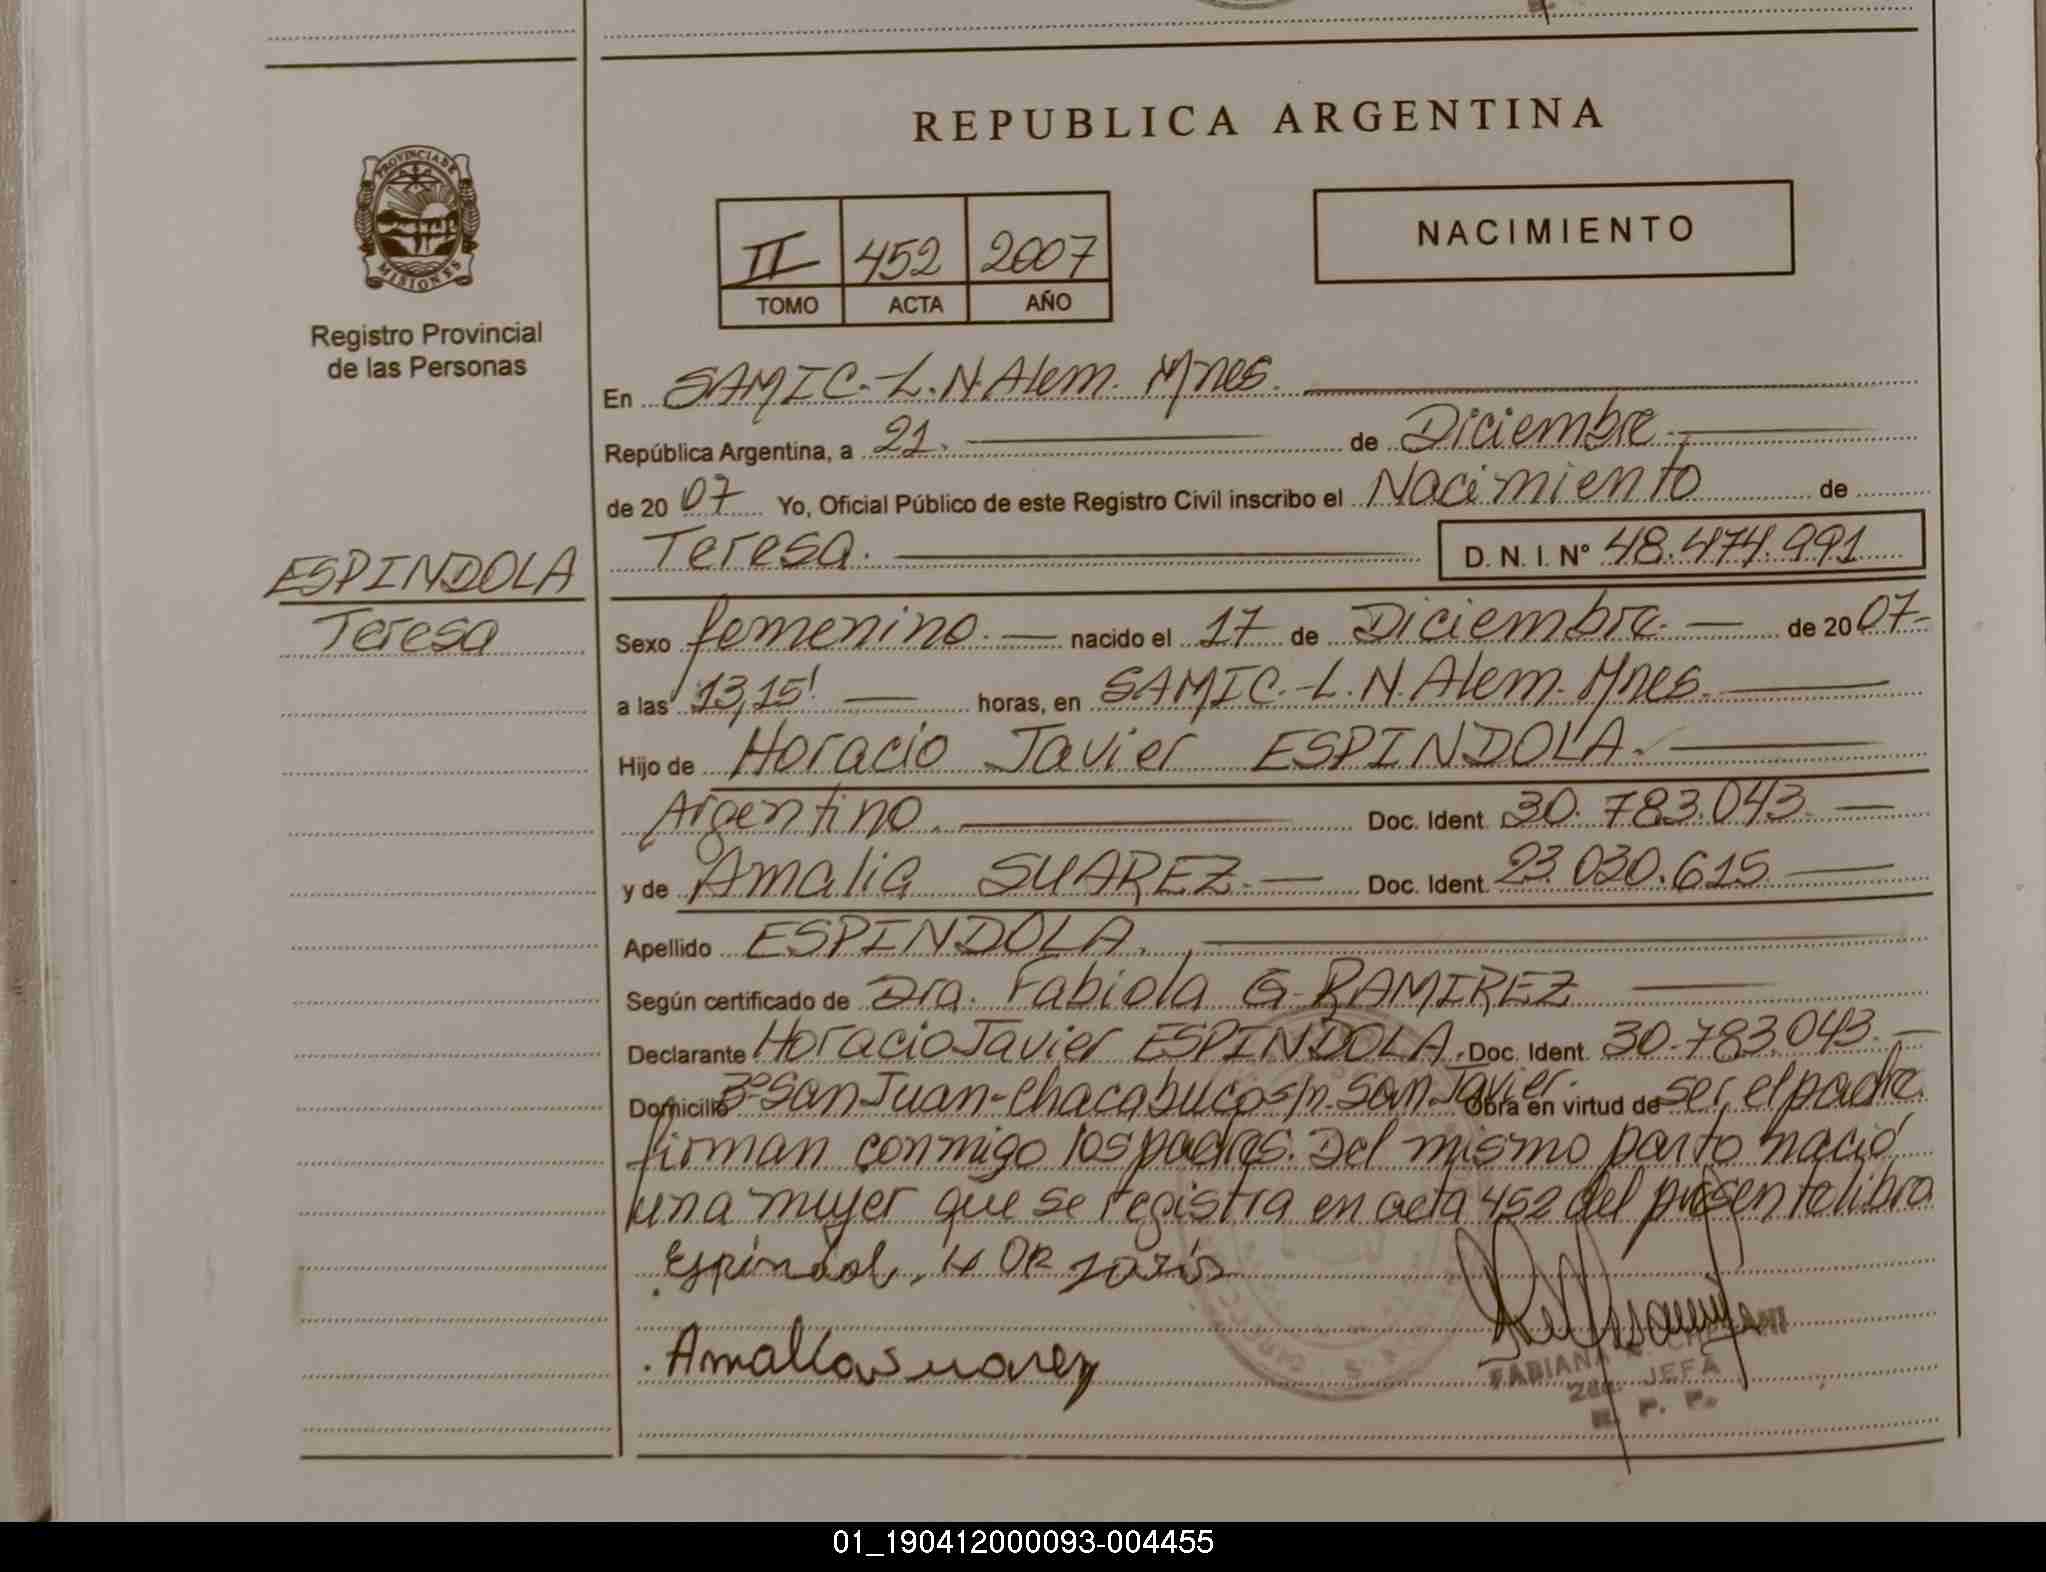 REPUBLICA ARGENTINA
PROVINCIA DE
MISIONES
Registro Provincial
de las Personas
II 452 2007
TOMO ACTA AÑO
NACIMIENTO
En SAMIC.-L.N.Alem. Mnes.
República Argentina, a 21. de Diciembre
de 20 07 Yo, Oficial Público de este Registro Civil inscribo el Nacimiento de
Teresa. D. N. I. Nº 48.474.991
ESPINDOLA
Teresa
Sexo femenino. nacido el 17 de Diciembre. de 20 07-
a las 13,15' horas, en SAMIC.-L.N.Alem. Mnes.
Hijo de Horacio Javier ESPINDOLA.
Argentino. Doc. Ident. 30.783.043.
y de Amalia SUAREZ. Doc. Ident. 23.030.615
Apellido ESPINDOLA.
Según certificado de Dra. Fabiola G. RAMIREZ
Declarante Horacio Javier ESPINDOLA. Doc. Ident. 30.783.043.
Domicilio Bº San Juan-Chacabuco s/n. San Javier. Obra en virtud de ser, el padre.
firman conmigo los padres. Del mismo parto nació
una mujer que se registra en acta 452 del presente libro
Amalia Suarez
FABIANA
2da. JEFA
R. P. P.
01_190412000093-004455